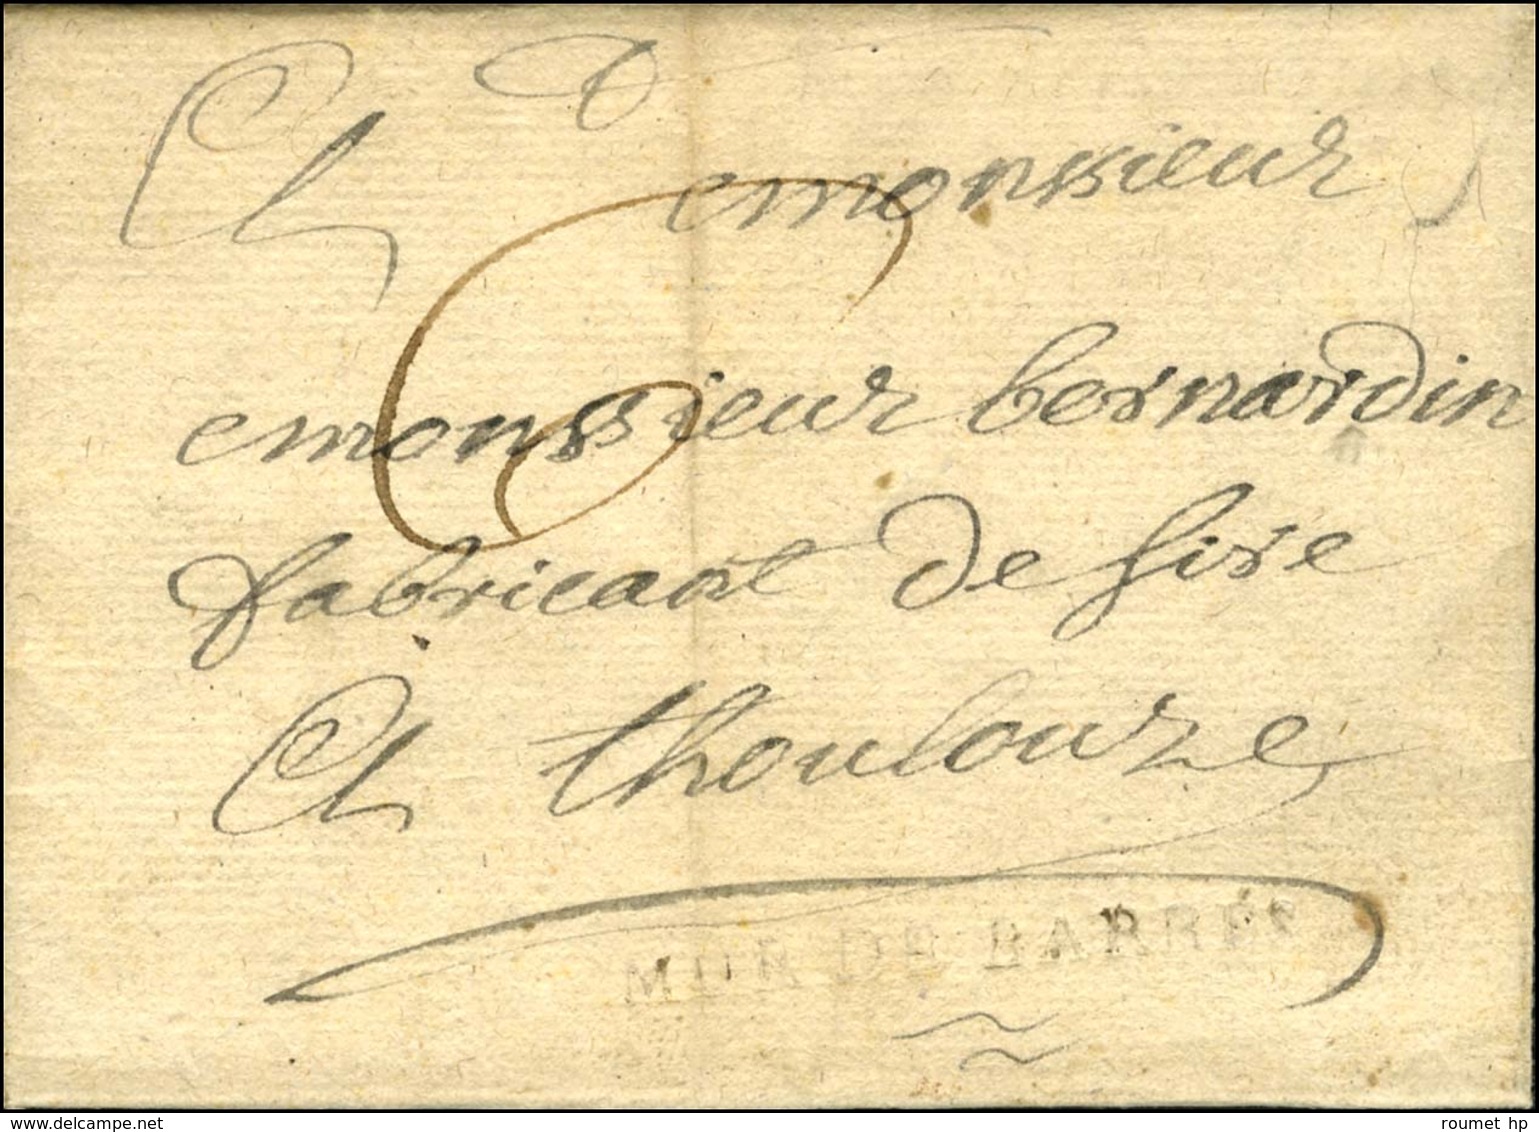 A monsieur
monsieur bernardin
fabricant de sire
A thoulouze
MUR DE BARRES
www.delcampe.net
roumet hp